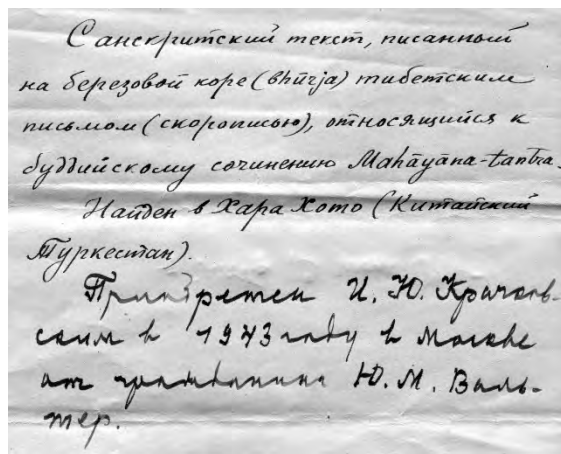 Санскритский текст, писанный
на березовой коре (bhūrja) тибетским
письмом (скорописью), относящийся к
буддийскому сочинению Mahāyāna-tantra.
Найден в Хара Хото (Китайский
Туркестан).
Приобретен И. Ю. Крачков-
ским в 1943 году в Москве
от гражданина Ю. М. Валь-
тер.